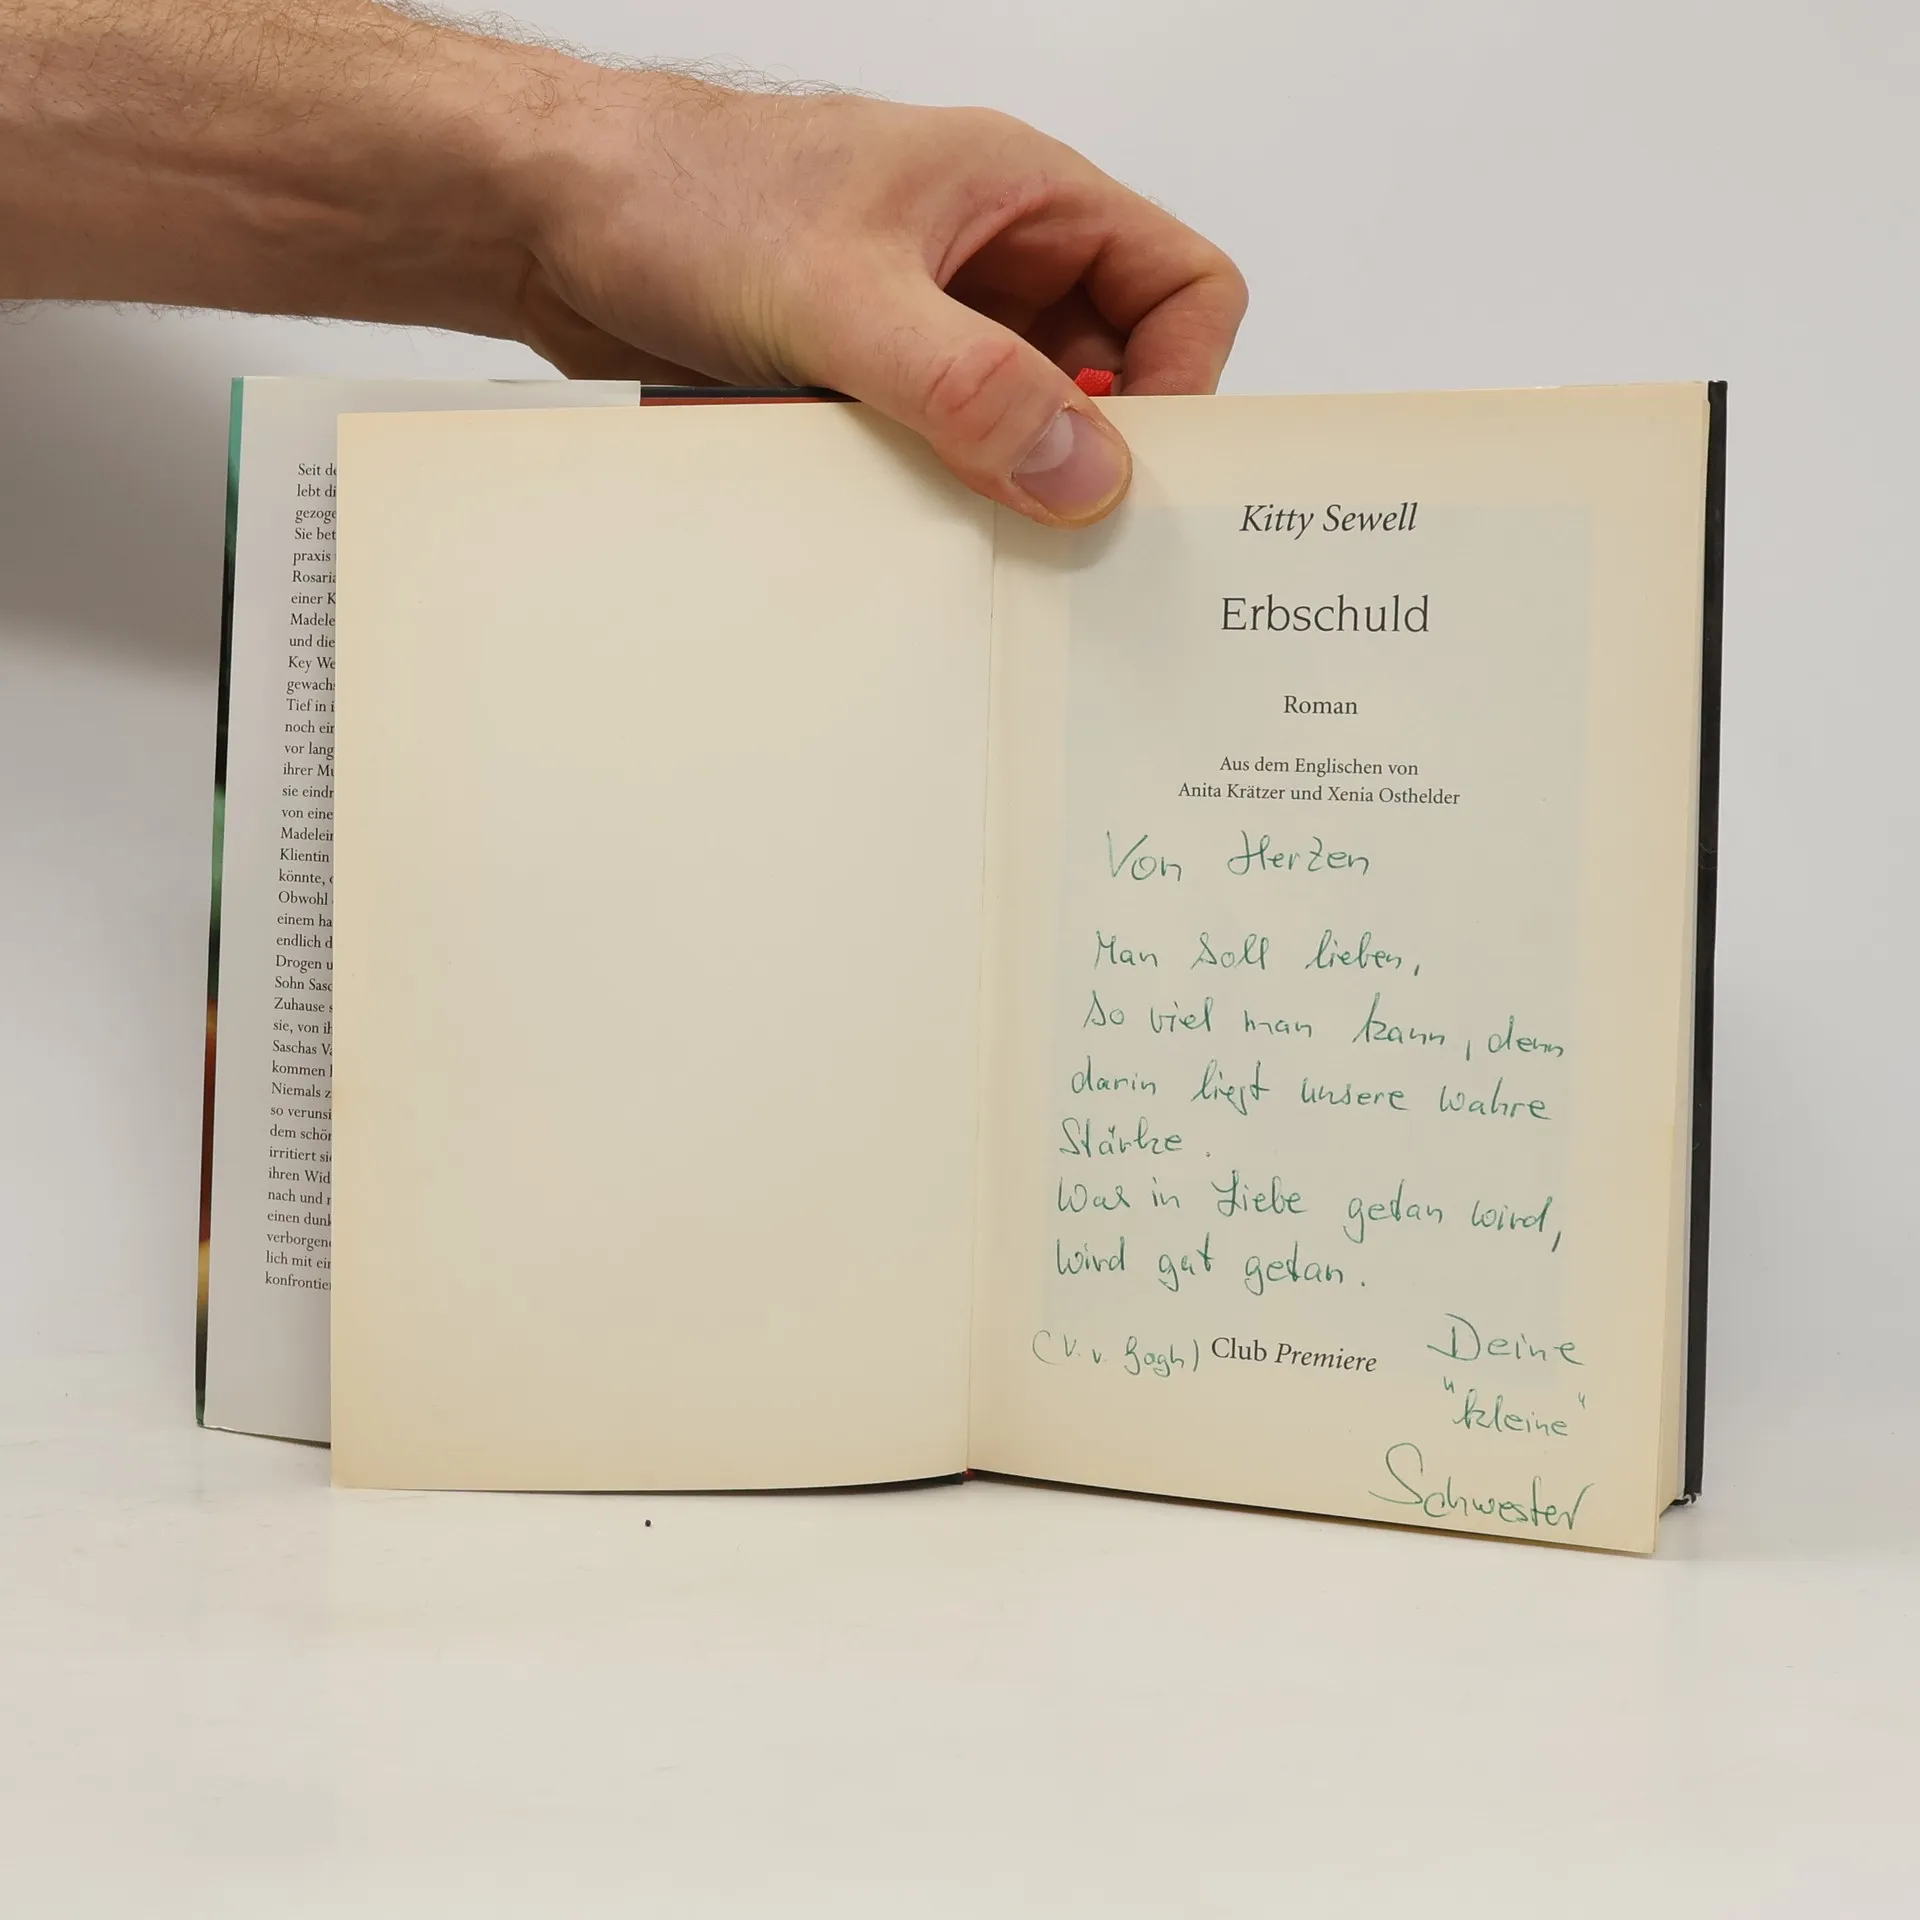 Seit
lebt
gezoge
Sie
praxis
Rosaria
einer K
Madele
und die
Key We
gewachs
Tief in
noch
vor lang
ihrer
sie
von eine
Madelein
Klientin
könnte,
Obwohl
einem
endlich
Drogen
Sohn Sasc
Zuhause
sie, von
Saschas
kommen
Niemals
so verunsi
dem schön
irritiert
ihren Wid
nach und
einen dunk
verborgene
lich mit
konfrontie
Kitty Sewell
Erbschuld
Roman
Aus dem Englischen von
Anita Krätzer und Xenia Osthelder
Von Herzen
Man soll lieben,
so viel man kann, denn
darin liegt unsere wahre
Stärke.
Was in Liebe getan wird,
wird gut getan.
(V. v. Gogh) Club Premiere
Deine
"kleine"
Schwester